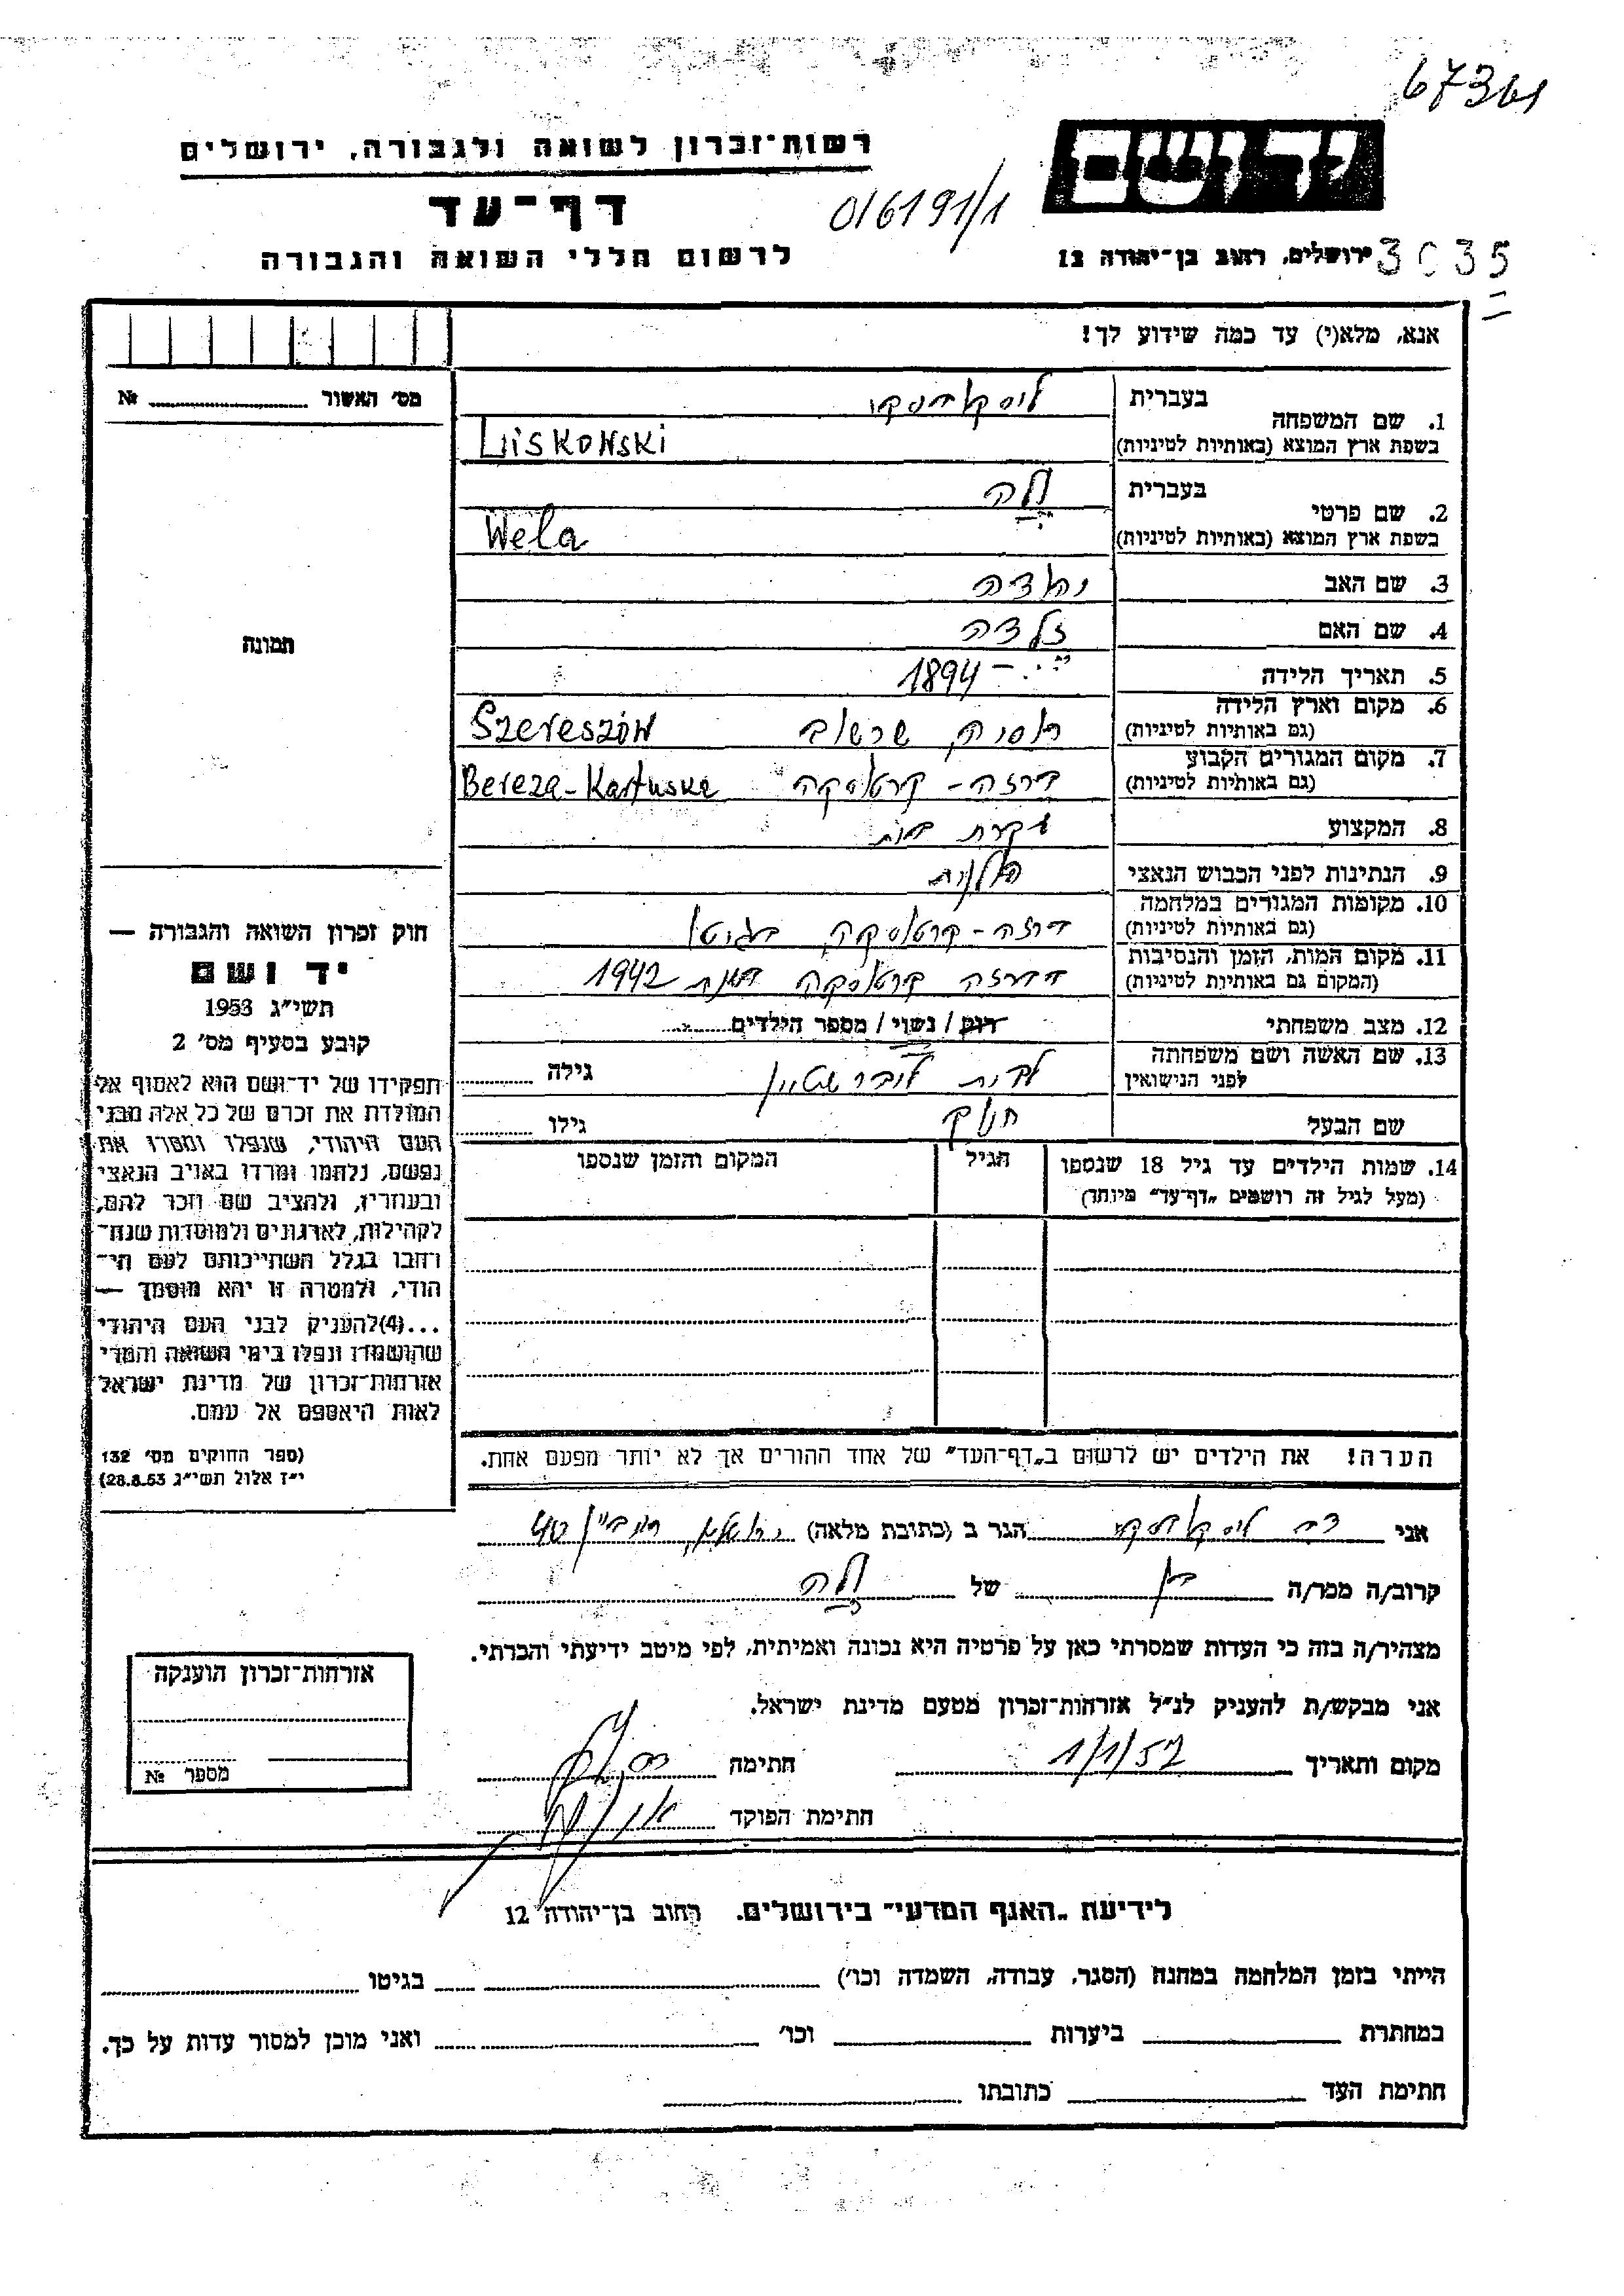 67361
ידושם
רשות־זכרון לשואה ולגבורה, ירושלים
דף־עד
016191/1
לרשום חללי השואה והגבורה
ירושלים, רחוב בן־יהודה 12
3035
אנא, מלא(י) עד כמה שידוע לך!
מס׳ האשור № 
תמונה
1. שם המשפחה
בעברית ליסקובסקי
בשפת ארץ המוצא (באותיות לטיניות) Liskowski
2. שם פרטי
בעברית ולה
בשפת ארץ המוצא (באותיות לטיניות) Wela
3. שם האב יהודה
4. שם האם זלדה
5. תאריך הלידה 1894
6. מקום וארץ הלידה
(גם באותיות לטיניות) רוסיה, שרשוב Szereszów
7. מקום המגורים הקבוע
(גם באותיות לטיניות) ברזה - קרטוסקה Bereza-Kartuska
8. המקצוע עקרת בית
9. הנתינות לפני הכבוש הנאצי פולנית
10. מקומות המגורים במלחמה
(גם באותיות לטיניות) ברזה-קרטוסקה, בגיטו
11. מקום המות, הזמן והנסיבות
(המקום גם באותיות לטיניות) בברזה קרטוסקה בשנת 1942
12. מצב משפחתי רוק / נשוי / מספר הילדים
13. שם האשה ושם משפחתה
לפני הנישואין לבית גילה
שם הבעל חנוך גילו
14. שמות הילדים עד גיל 18 שנספו
(מעל לגיל זה רושמים „דף־עד״ מיוחד)
הגיל
המקום והזמן שנספו
הערה! את הילדים יש לרשום ב„דף־העד״ של אחד ההורים אך לא יותר מפעם אחת.
חוק זכרון השואה והגבורה —
יד ושם
תשי״ג 1953
קובע בסעיף מס׳ 2
תפקידו של יד־ושם הוא לאסוף אל
המולדת את זכרם של כל אלה מבני
העם היהודי, שנפלו ומסרו את
נפשם, נלחמו ומרדו באויב הנאצי
ובעוזריו, ולהציב שם וזכר להם,
לקהילות, לארגונים ולמוסדות שנח־
רחבו בגלל השתייכותם לעם הי־
הודי, ולמטרה זו יהא מוסמך —
...(4)להעניק לבני העם היהודי
שהושמדו ונפלו בימי השואה והמרי
אזרחות־זכרון של מדינת ישראל
לאות היאספם אל עמם.
(ספר החוקים מס׳ 132
י״ז אלול תשי״ג 28.8.53)
אני דב ליסקובסקי הגר ב (כתובת מלאה) 40
קרוב/ה מכר/ה בן של ולה
מצהיר/ה בזה כי העדות שמסרתי כאן על פרטיה היא נכונה ואמיתית, לפי מיטב ידיעתי והכרתי.
אני מבקש/ת להעניק לנ״ל אזרחות־זכרון מטעם מדינת ישראל.
מקום ותאריך 1/1/57 חתימה
חתימת הפוקד
אזרחות־זכרון הוענקה
מספר №
לידיעת „האגף המדעי״ בירושלים. רחוב בן־יהודה 12
הייתי בזמן המלחמה במחנה (הסגר, עבודה, השמדה וכו׳) בגיטו
במחתרת ביערות וכו׳ ואני מוכן למסור עדות על כך.
חתימת העד כתובתו